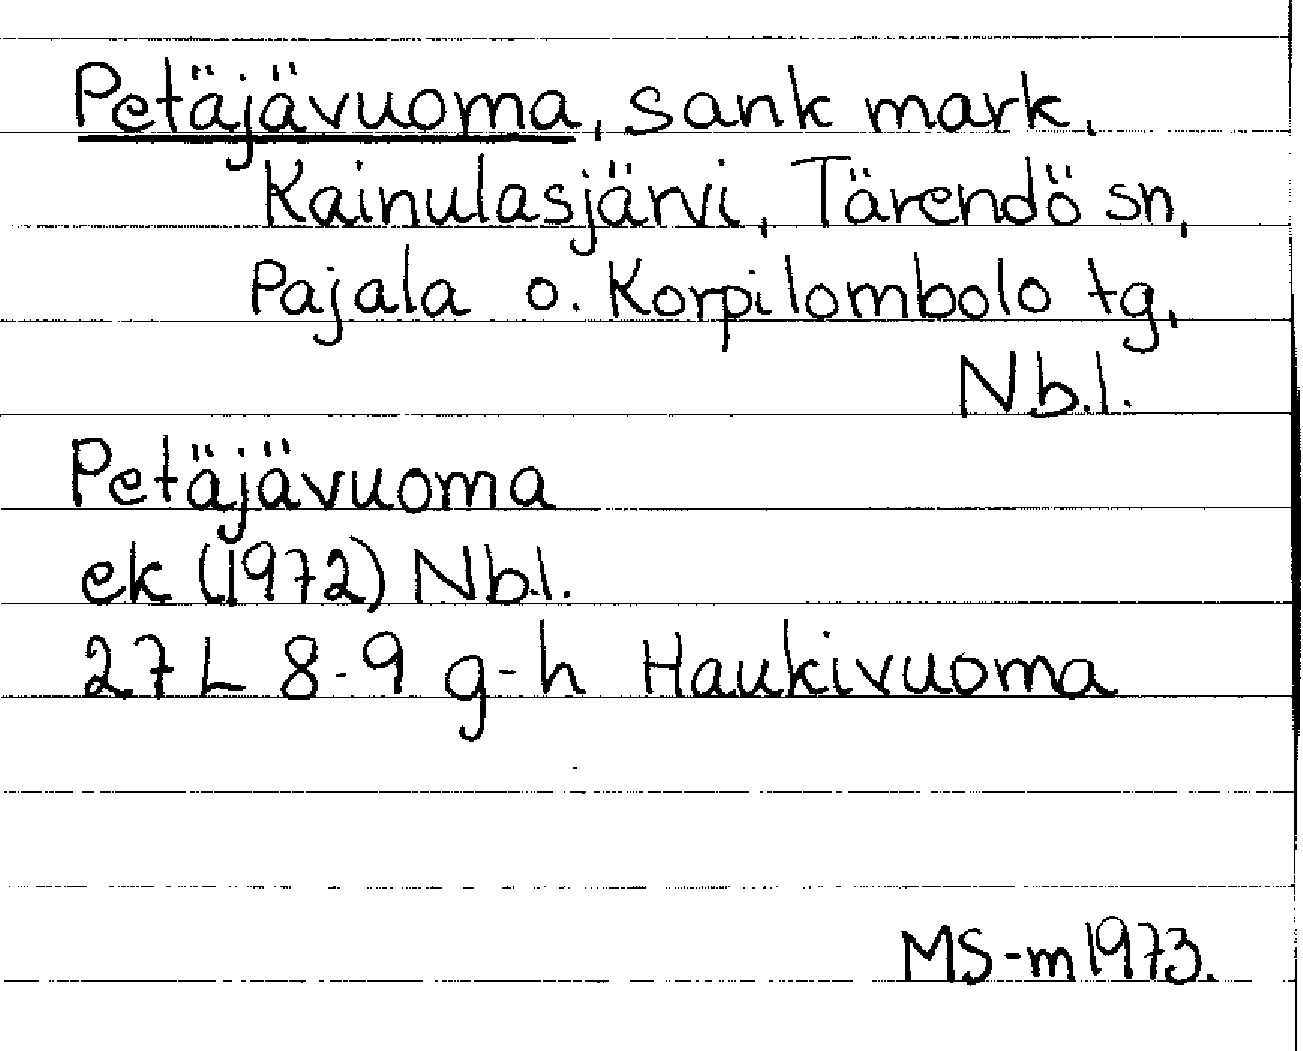 Petäjävuoma, sank mark,
Kainulasjärvi, Tärendö sn,
Pajala o. Korpilombolo tg,
Nb.l.
Petäjävuoma
ek (1972) Nb.l.
27 L 8-9 g-h Haukivuoma
MS-m 1973.